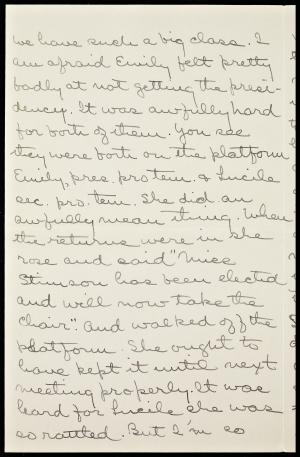 we have such a big class. I
am afraid Emily felt pretty
badly at not getting the presi-
dency. It was awfully hard
for both of them. You see
they were both on the platform
Emily, pres. pro. tem. & Lucile
sec. pro. tem. She did an
awfully mean thing. When
the returns were in she
rose and said "Miss
Stimson has been elected
and will now take the
chair". and walked off the
platform. She ought to
have kept it until next
meeting properly. It was
hard for Lucile she was
so rattled. But I'm so